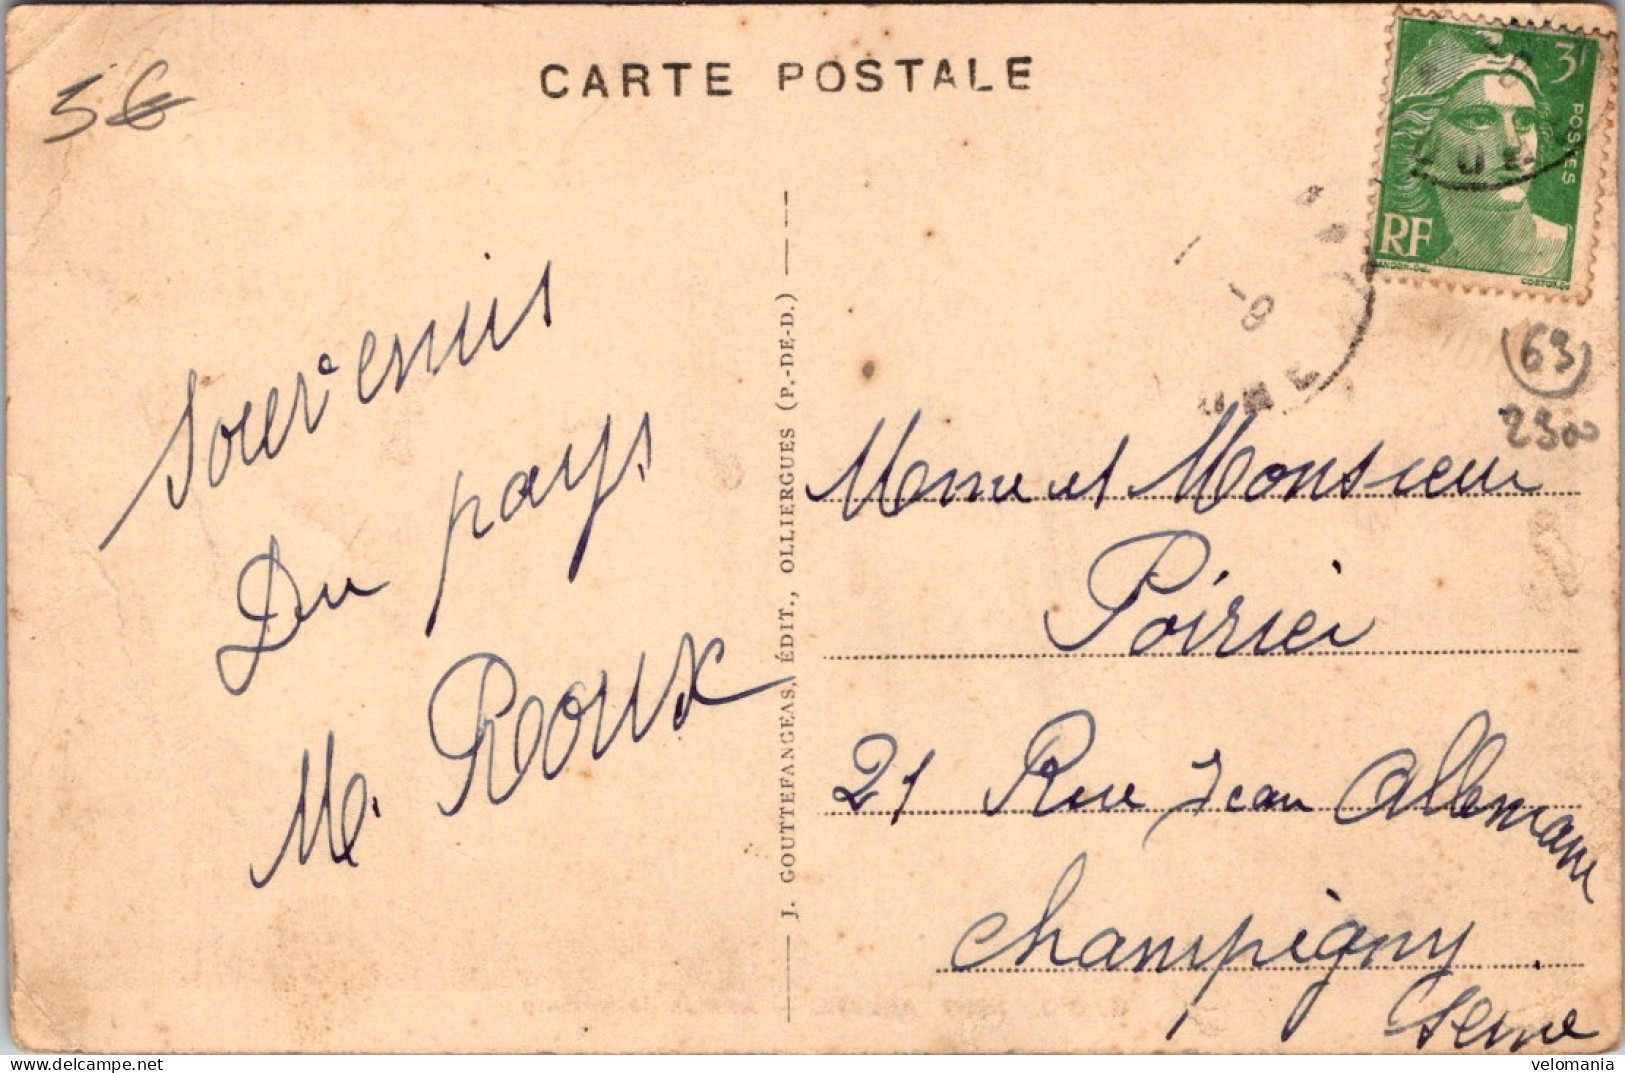 5€
CARTE POSTALE
3F
POSTES
RF
GANDON.DEL
CORTOT.SC
(63)
2300
Souvenirs
Du pays
M. Roux
J. GOUTTEFANGEAS, ÉDIT., OLLIERGUES (P.-DE-D.)
Mme et Monsieur
Poirier
21 Rue Jean Allemane
Champigny
Seine
delcampe.net
velomania